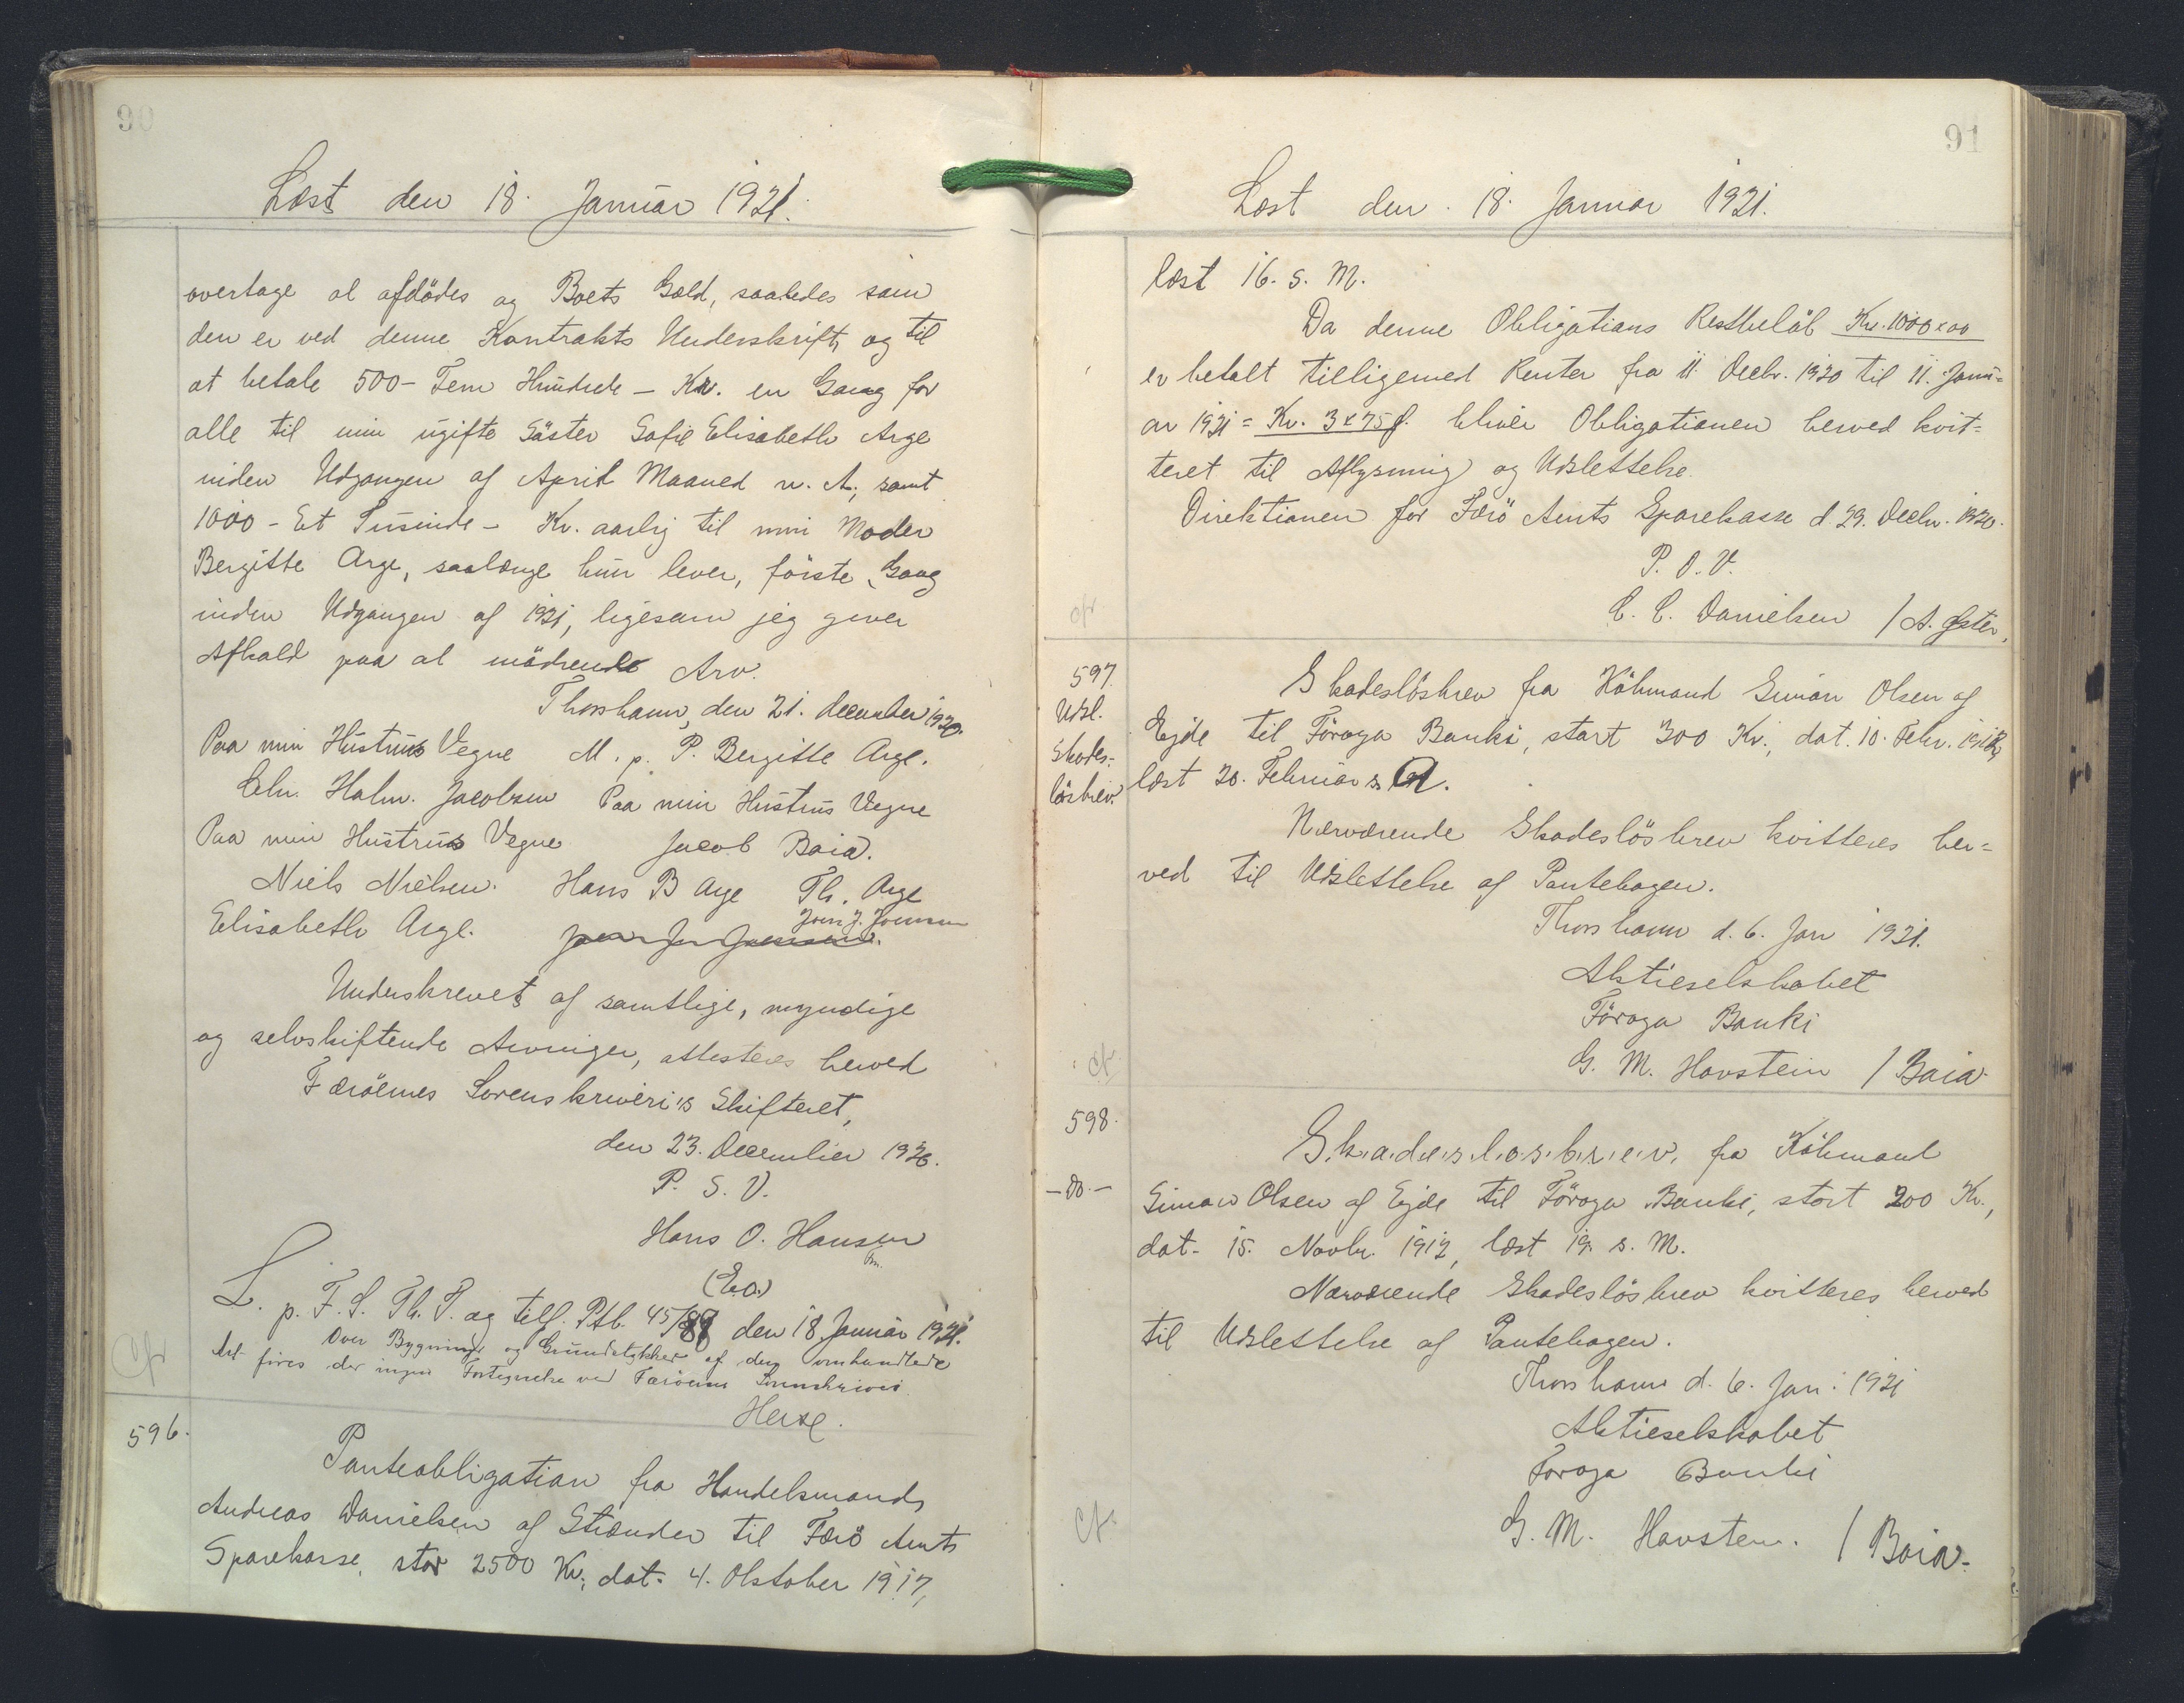 90
Læst den 18. Januar 1921.
overtage al afdødes og Boets Gæld, saaledes som
den er ved denne Kontrakts Underskrift, og til
at betale 500 - Fem Hundrede - Kr. en Gang for
alle til min ugifte Søster Sofie Elisabeth Arge
inden Udgangen af April Maaned n. A., samt
1000 - Et Tusinde - Kr. aarlig til min Moder
Bergitte Arge, saalænge hun lever, første Gang
inden Udgangen af 1921, ligesom jeg giver
Afkald paa al mødrende Arv.
Thorshavn, den 21. December 1920.
Paa min Hustrus Vegne M. p. P. Bergitte Arge.
Chr. Holm. Jacobsen Paa min Hustrus Vegne
Paa min Hustrus Vegne Jacob Baia.
Niels Nielsen. Hans B Arge Th. Arge
Joen J. Joensen
Elisabeth Arge.
Underskrevet af samtlige, myndige
og selvskiftende Arvinger, attesteres herved
Færøernes Sorenskriveri's Skifteret,
den 23. December 1920.
P. S. V.
Hans O. Hansen
fm.
(E.a.)
L. p. F. S. Th. T. og tilf. Ptb. 45/89 den 18 Januar 1921.
Over Bygninger og Grundstykker af den omhandlede
Art føres der ingen Fortegnelse ved Færöernes Sorenskriveri
cfr
Heise.
596.
Panteobligation fra Handelsmand
Andreas Danielsen af Strænder til Færö Amts
Sparekasse, stor 2500 Kr., dat. 4. Oktober 1917,
91
Læst den 18. Januar 1921.
læst 16. s. M.
Da denne Obligations Restbeløb Kr. 1000x00
er betalt tilligemed Renter fra 11. Decbr. 1920 til 11. Janu=
ar 1921 = Kr. 3x75 f. bliver Obligationen herved kvit=
teret til Aflysning og Udslettelse.
Direktionen for Færö Amts Sparekasse d 29. Decbr. 1920.
P. D. V.
C. C. Danielsen / A. Øster,
cfr
597.
Udsl.
Skades=
løsbrev.
Skadesløsbrev fra Købmand Simon Olsen af
Ejde til Föroya Banki, stort 300 Kr., dat. 10. Febr. 1912,
læst 20. Februar s. A.
Nærværende Skadesløsbrev kvitteres her=
ved til Udslettelse af Pantebogen.
Thorshavn d. 6. Jan 1921.
Aktieselskabet
Föroya Banki
G. M. Havstein / Baia
cfr.
598.
- Do. -
Skadesløsbrev fra Købmand
Simon Olsen af Ejde til Föroya Banki, stort 200 Kr.,
dat. 15. Novbr. 1912, læst 19. s. M.
Nærværende Skadesløsbrev kvitteres herved
til Udslettelse af Pantebogen.
Thorshavn d. 6. Jan. 1921
Aktieselskabet
Föroya Banki
G. M. Havsten. / Baia.
cfr.